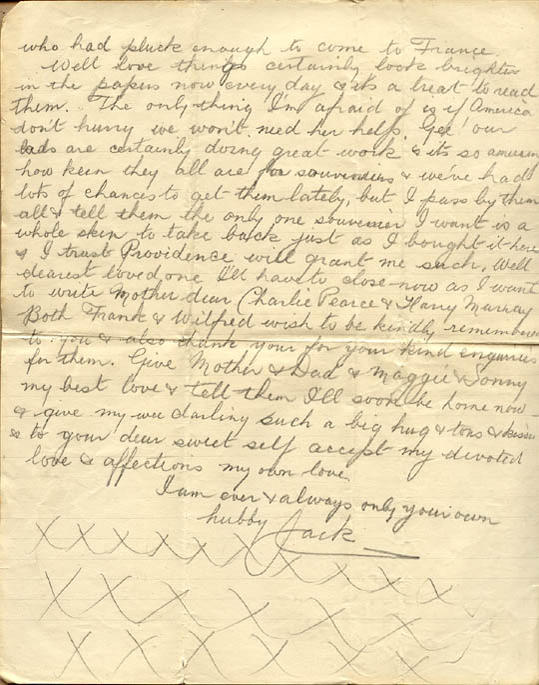 who had pluck enough to come to France.
Well love things certainly look brighter
in the papers now every day & its a treat to read
them. The only thing I'm afraid of is if America
don't hurry we won't need her help. Gee! our
lads are certainly doing great work & its so amusin
how keen they all are for souveniers & we've had
lots of chances to get them lately, but I pass by them
all & tell them the only one souvenier I want is a
whole skin to take back just as I bought it here
& I trust Providence will grant me such. Well
dearest loved one I'll have to close now as I want
to write Mother dear (Charlie Pearce & Harry Murray
Both Frank & Wilfred wish to be kindly remembered
to you & also thank your for your kind enquiries
for them. Give Mother & Dad & Maggie & Sonny
my best love & tell them I'll soon be home now
& give my wee darling such a big hug & tons & kisses
& to your dear sweet self accept my devoted
love & affections my own love.
I am ever & always only your own
hubby Jack
X X X X X X X X
X X X X X X X X
X X X X X X